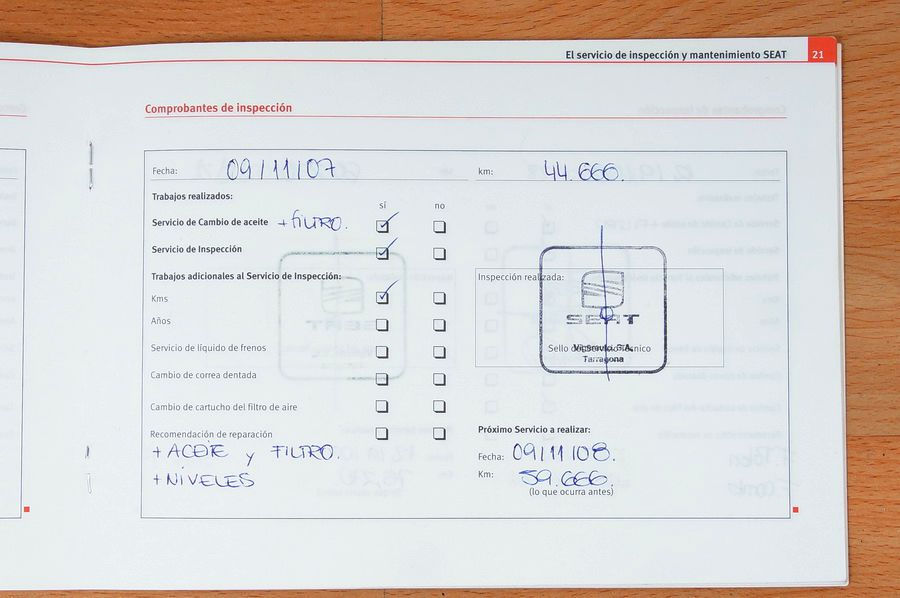 El servicio de inspección y mantenimiento SEAT 21
Comprobantes de inspección
Fecha: 09/11/07 km: 44.666.
Trabajos realizados:
sí no
Servicio de Cambio de aceite + FILTRO.
Servicio de Inspección
Trabajos adicionales al Servicio de Inspección:
Kms
Años
Servicio de líquido de frenos
Cambio de correa dentada
Cambio de cartucho del filtro de aire
Recomendación de reparación
+ ACEITE y FILTRO.
+ NIVELES
Inspección realizada:
SEAT
Sello del Servicio Técnico
Tarragona
Próximo Servicio a realizar:
Fecha: 09/11/08.
Km: 59.666.
(lo que ocurra antes)